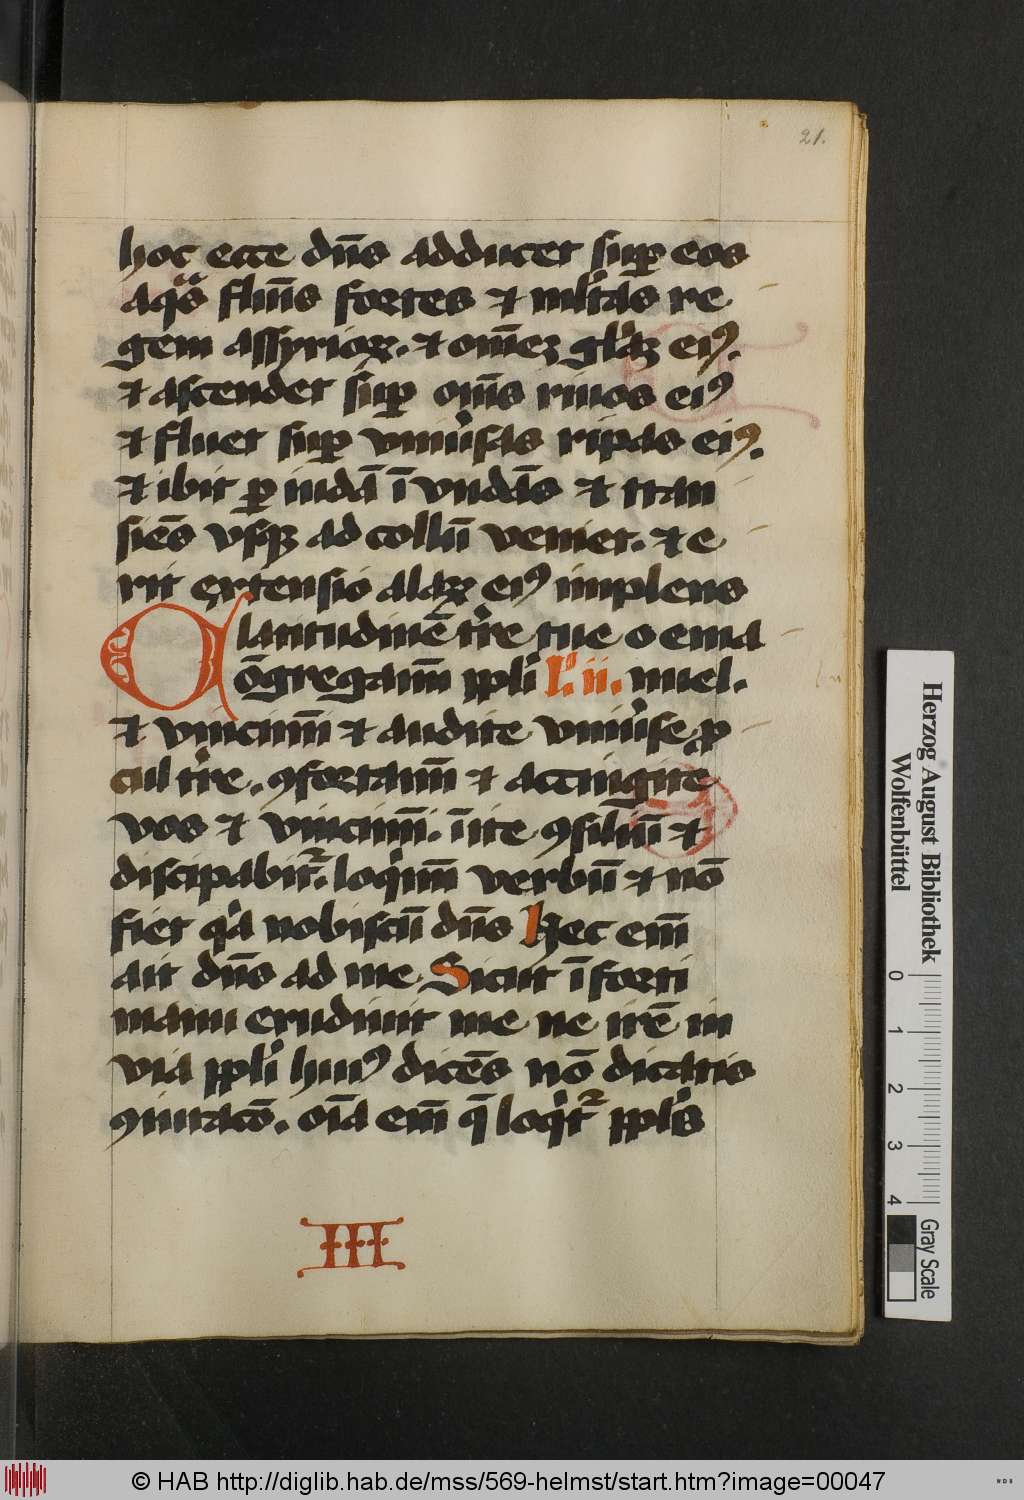 21.
hoc ecce dn̄s adducet suꝑ eos
aqͣs fluīs fortes ⁊ ml̓tas re
gem assyrioꝝ. ⁊ om̄eꝫ gl̓aꝫ eiꝰ.
⁊ ascendet suꝑ om̄s riuos eiꝰ
⁊ fluet suꝑ vniu̓sas ripas eiꝰ.
⁊ ibit ꝑ iudā ī vndās ⁊ tran
siēs vsqꝫ ad collū veniet. ⁊ e
rit extensio alaꝝ eiꝰ implens
latitudinē tr̓re tue o ema
Cōgregam̄ ppl̓i Lͦ. ii. nuel.
⁊ vincim̄ ⁊ audite vniu̓se ꝓ
cul tr̓re. ꝯfortam̄ ⁊ accingite
vos ⁊ vincim̄. īite ꝯsiliū ⁊
discipabit᷑. loq̓im̄ verbū ⁊ nō
fiet qͥa nobiscū dn̄s Hec em̄
ait dn̄s ad me Sicut ī forti
manu erudiuit me ne irē in
via ppl̓i huiꝰ dicēs nō dicatis
ꝯiuracō. oīa em̄ q̄ loqͥt᷑ ppl̓s
III
Herzog August Bibliothek
Wolfenbüttel
0 1 2 3 4
Gray Scale
© HAB http://diglib.hab.de/mss/569-helmst/start.htm?image=00047